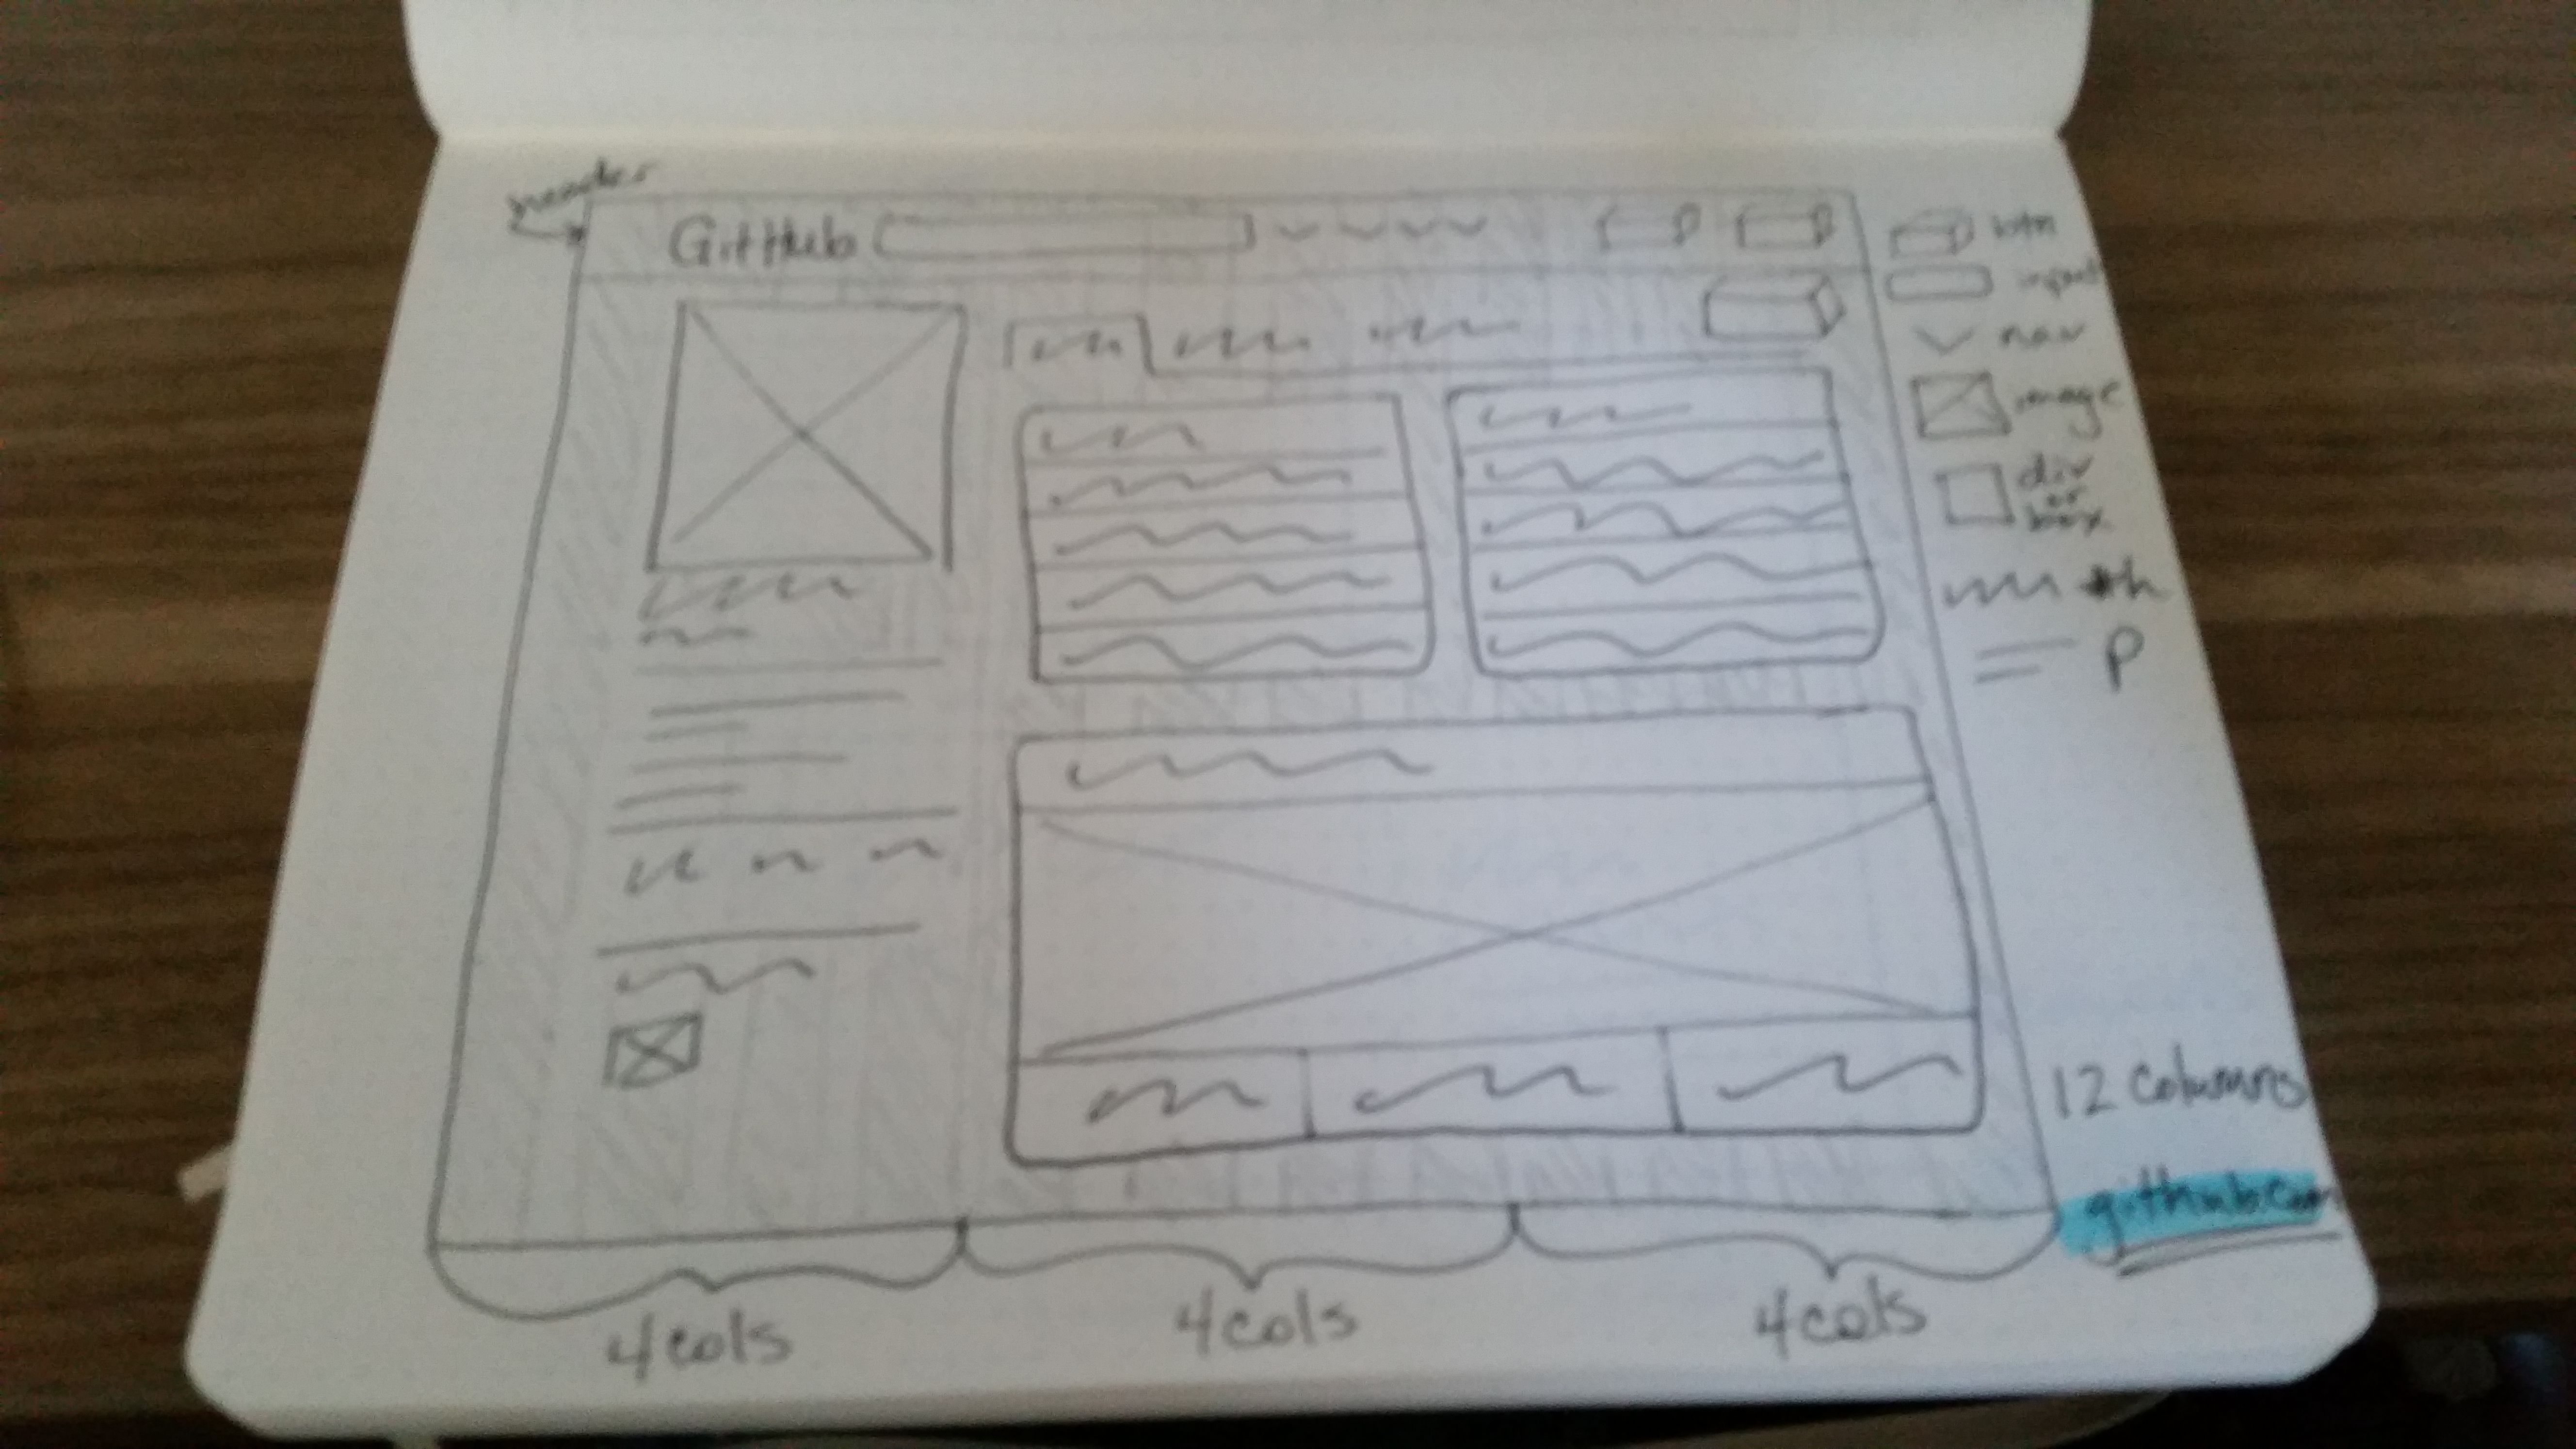 header
GitHub
btn
input
nav
image
div
or
box
h
P
12 Columns
github.com
4cols
4cols
4cols